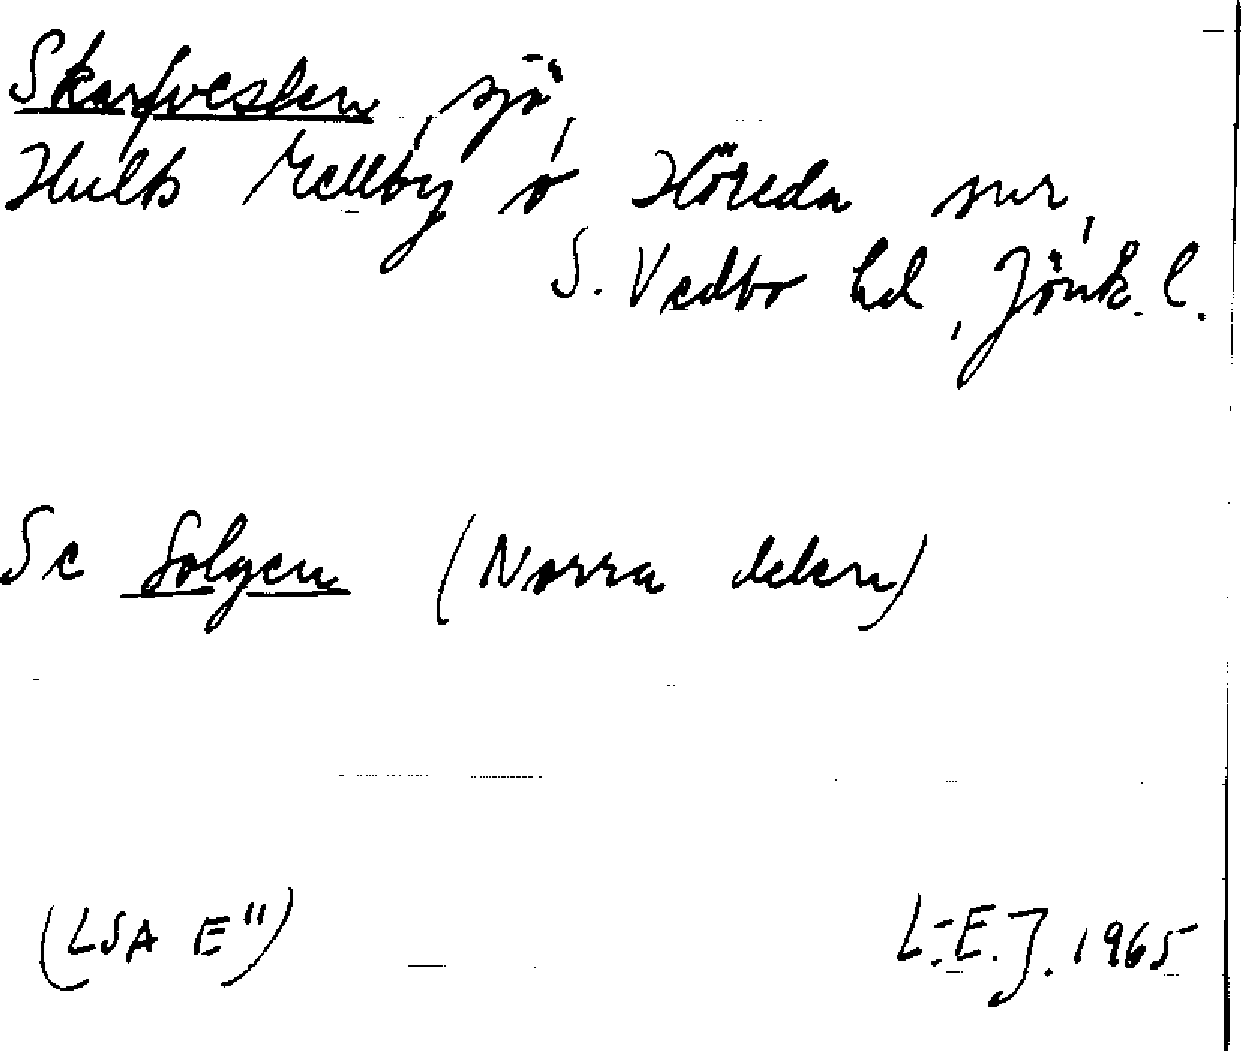 Skarfvesten, sjö,
Hults Edshult, Mellby o Höreda snr,
S. Vedbo hd, Jönk. l.
Se Solgen (Norra delen)
(LSA E")
L-E.J. 1965